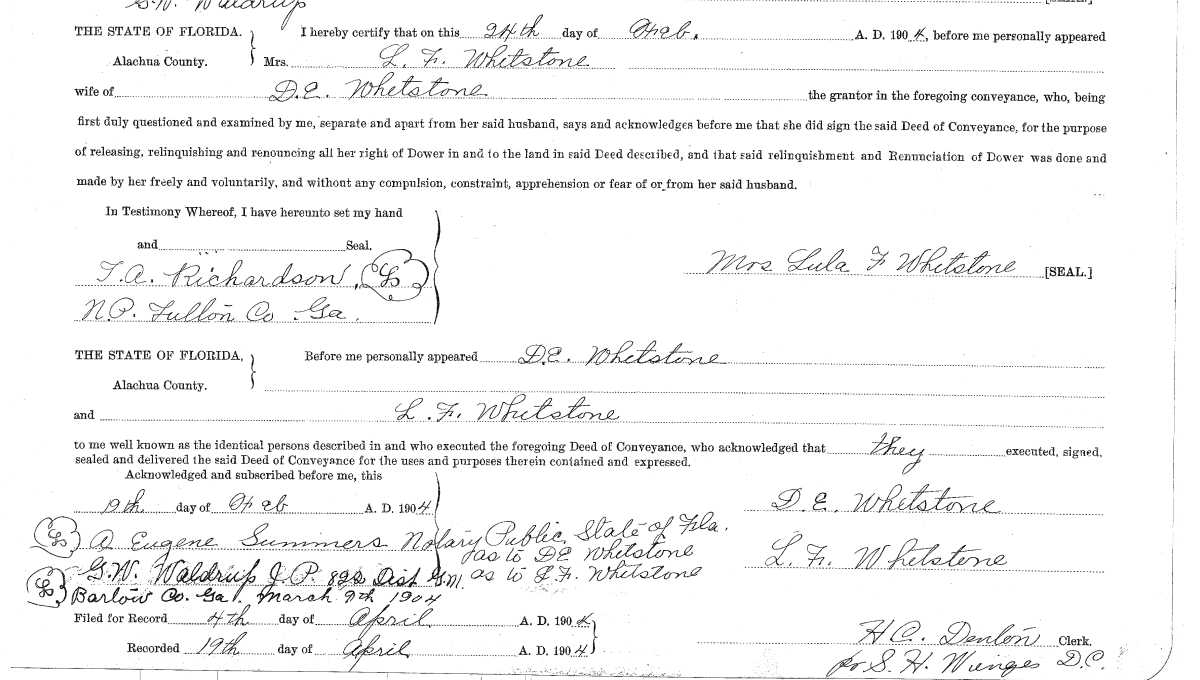 G.W. Waldrup
THE STATE OF FLORIDA. I hereby certify that on this 24th day of Feb. A. D. 1904, before me personally appeared
Alachua County. Mrs. L. F. Whetstone
wife of D.E. Whetstone the grantor in the foregoing conveyance, who, being
first duly questioned and examined by me, separate and apart from her said husband, says and acknowledges before me that she did sign the said Deed of Conveyance, for the purpose
of releasing, relinquishing and renouncing all her right of Dower in and to the land in said Deed described, and that said relinquishment and Renunciation of Dower was done and
made by her freely and voluntarily, and without any compulsion, constraint, apprehension or fear of or from her said husband.
In Testimony Whereof, I have hereunto set my hand
and Seal.
T.A. Richardson, LS
Mrs Lula F Whetstone [SEAL.]
N.P. Fulton Co Ga.
THE STATE OF FLORIDA, Before me personally appeared D.E. Whetstone
Alachua County.
and L. F. Whetstone
to me well known as the identical persons described in and who executed the foregoing Deed of Conveyance, who acknowledged that they executed, signed,
sealed and delivered the said Deed of Conveyance for the uses and purposes therein contained and expressed.
Acknowledged and subscribed before me, this
19th day of Feb A. D. 1904
D. E. Whetstone
LS O Eugene Summers Notary Public State of Fla.
as to DE Whetstone
L. F. Whetstone
LS G.W. Waldrup J.P. 822 Dist G.M. as to L.F. Whetstone
Bartow Co. Ga. March 9th 1904
Filed for Record 4th day of April A. D. 1904
H.C. Denton Clerk.
Recorded 19th day of April A. D. 1904
pr S. H. Wienges D.C.